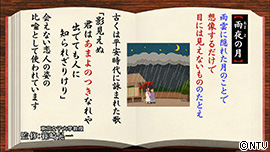 雨夜の月
雨雲に隠れた月のことで
想像するだけで
目には見えないもののたとえ
古くは平安時代に詠まれた歌
「影見えぬ
君はあまよのつきなれや
出でても人に
知られざりけり」
会えない恋人の姿の
比喩として使われています
©NTV